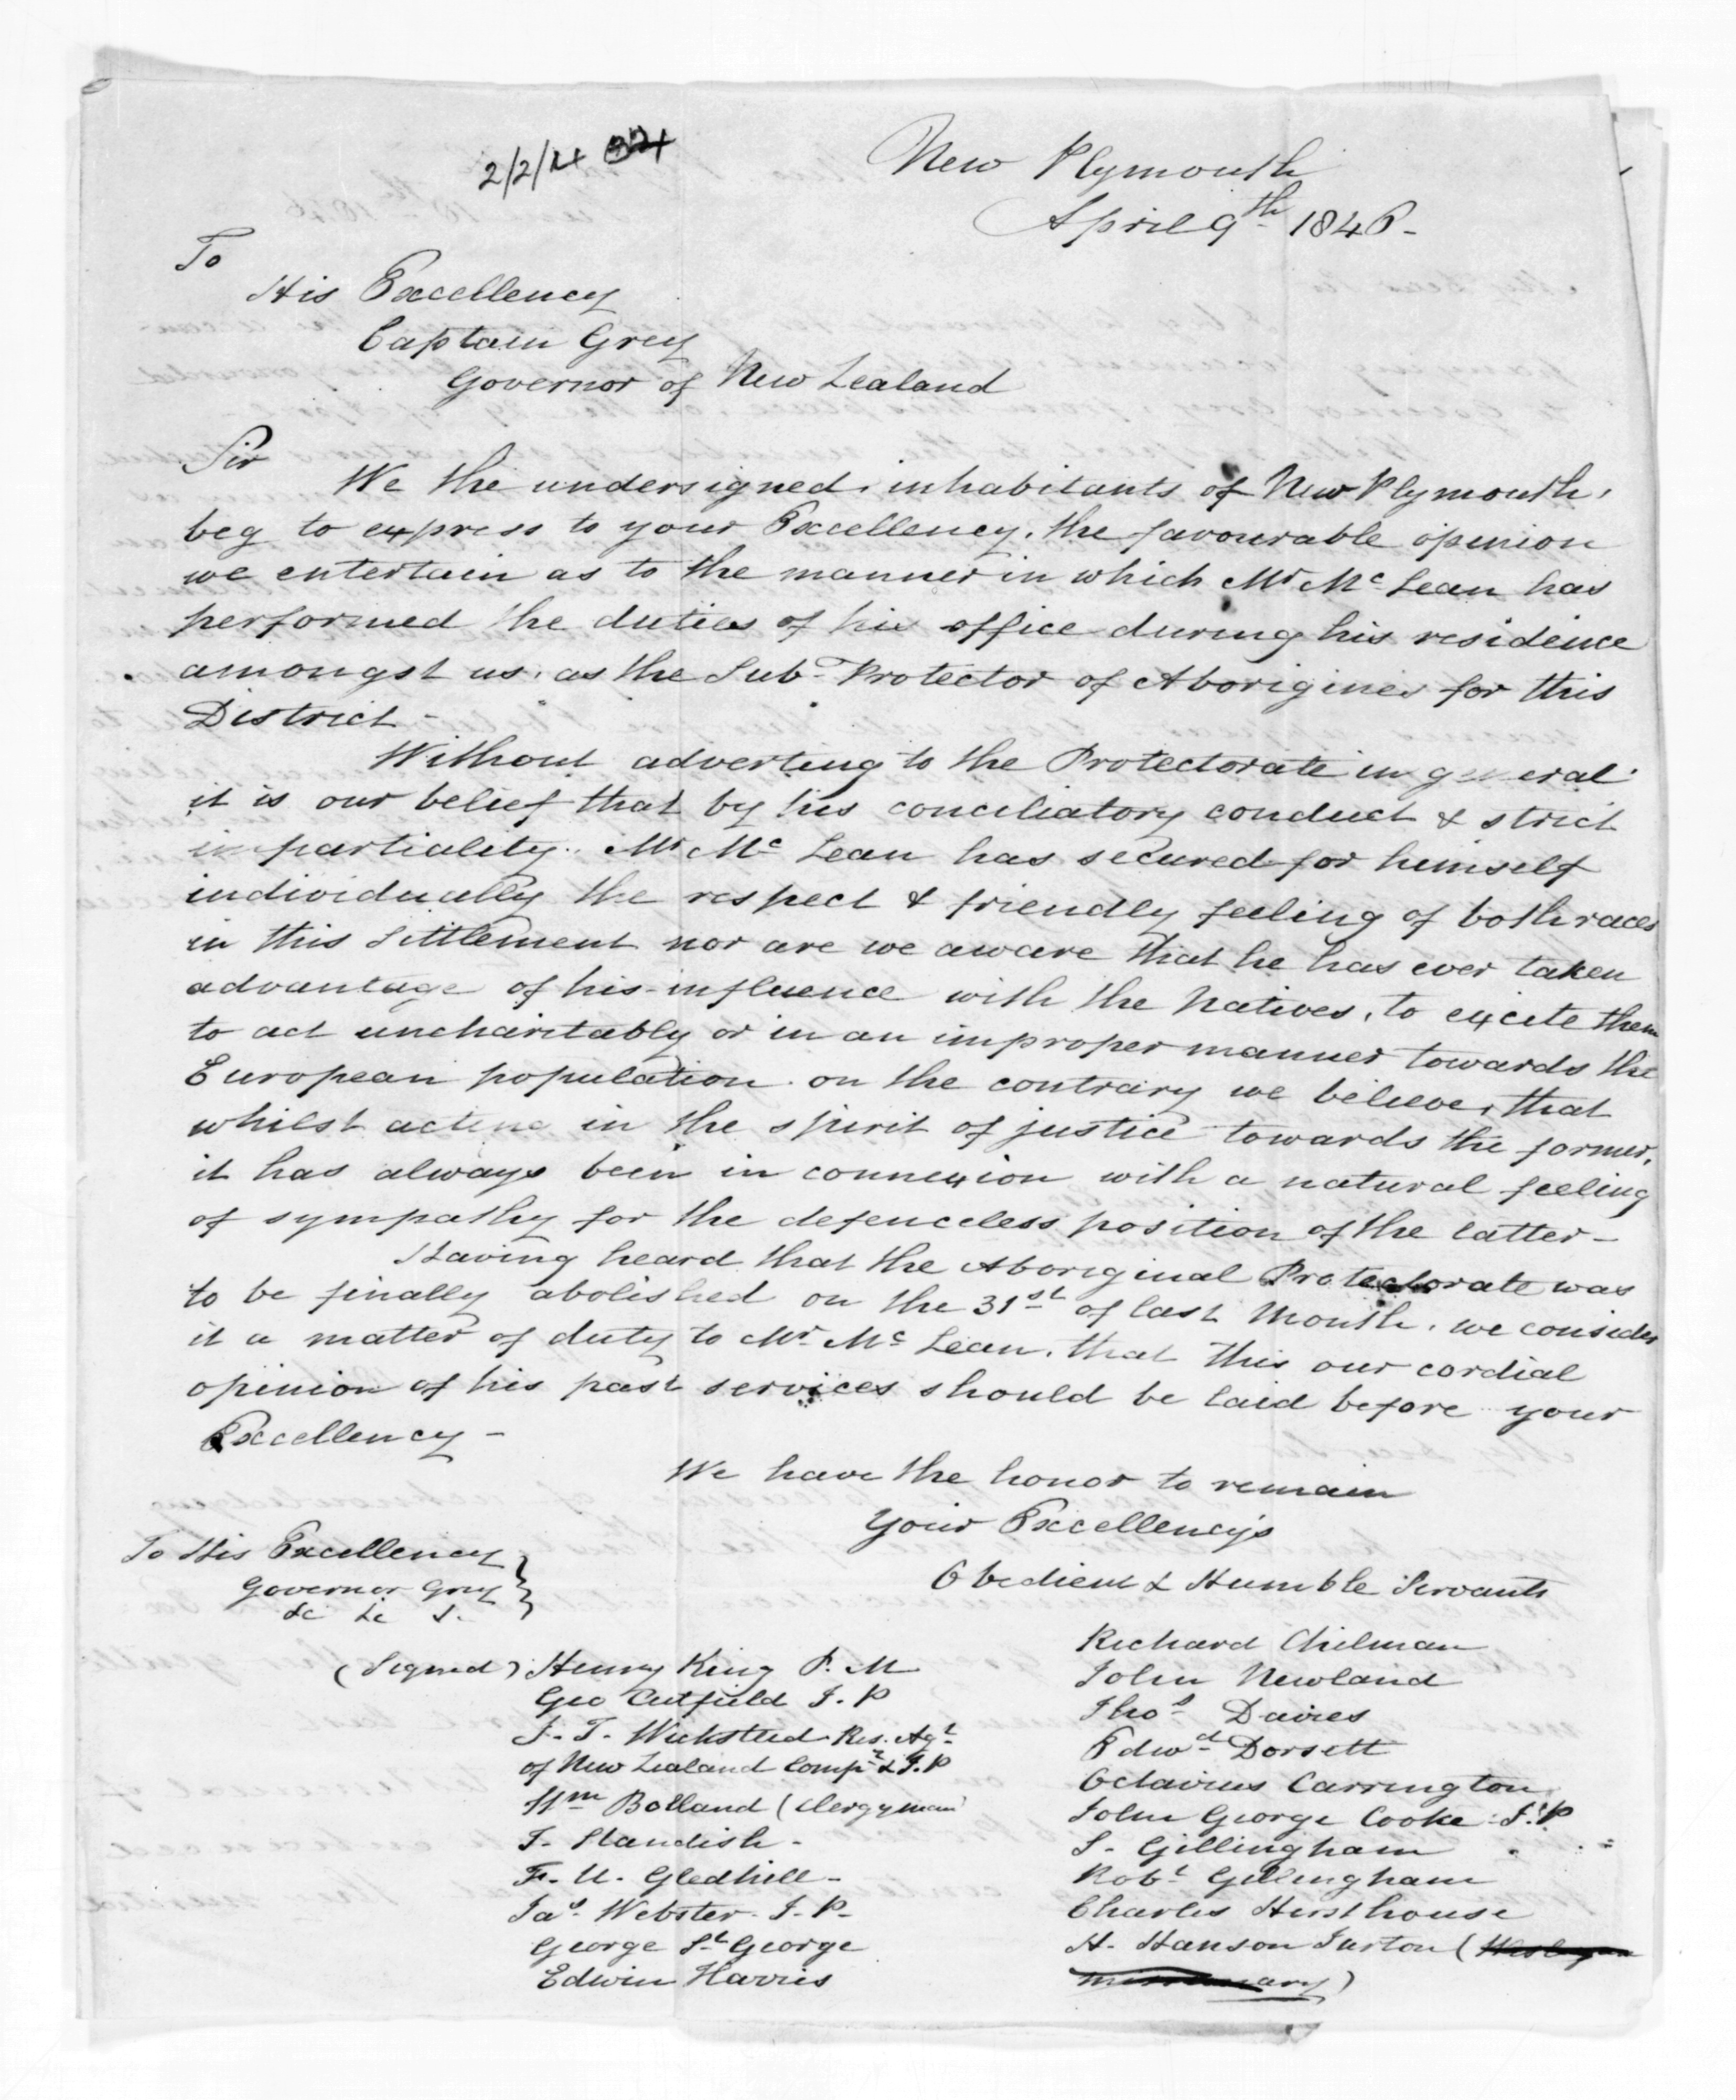 2/2/14
New Plymouth
April 9th 1846-
To
His Excellency
Captain Grey
Governor of New Zealand
Sir
We the undersigned, inhabitants of New Plymouth,
beg to express to your Excellency, the favourable opinion
we entertain as to the manner in which Mr McLean has
performed the duties of his office during his residence
amongst us, as the Sub-Protector of Aborigines for this
District-
Without adverting to the Protectorate in general
it is our belief that by his conciliatory conduct & strict
impartiality, Mr McLean has secured for himself
individually the respect & friendly feeling of both races
in this Settlement nor are we aware that he has ever taken
advantage of his influence with the Natives, to excite them
to act uncharitably or in an improper manner towards the
European population. on the contrary we believe, that
whilst acting in the spirit of justice towards the former,
it has always been in connexion with a natural feeling
of sympathy for the defenceless position of the latter-
Having heard that the Aboriginal Protectorate was
to be finally abolished on the 31st of last Month, we consider
it a matter of duty to Mr McLean, that this our cordial
opinion of his past services should be laid before your
Excellency-
We have the honor to remain
Your Excellency's
Obedient & Humble Servants
To His Excellency
Governor Grey
&c &c &.
(Signed) Henry King P. M
Geo Cutfield J. P
J. T. Wicksteed Res. Agt
of New Zealand Compy & J. P
Wm Bolland (Clergyman)
T. Standish-
F. U. Gledhill-
Jas Webster. J. P-
George St George
Edwin Harris
Richard Chilman
John Newland
Thos Davies
Edwd Dorsett
Octavius Carrington
John George Cooke J. P
S. Gillingham
Robt Gillingham
Charles Hursthouse
H. Hanson Turton (Wesleyan
Missionary)